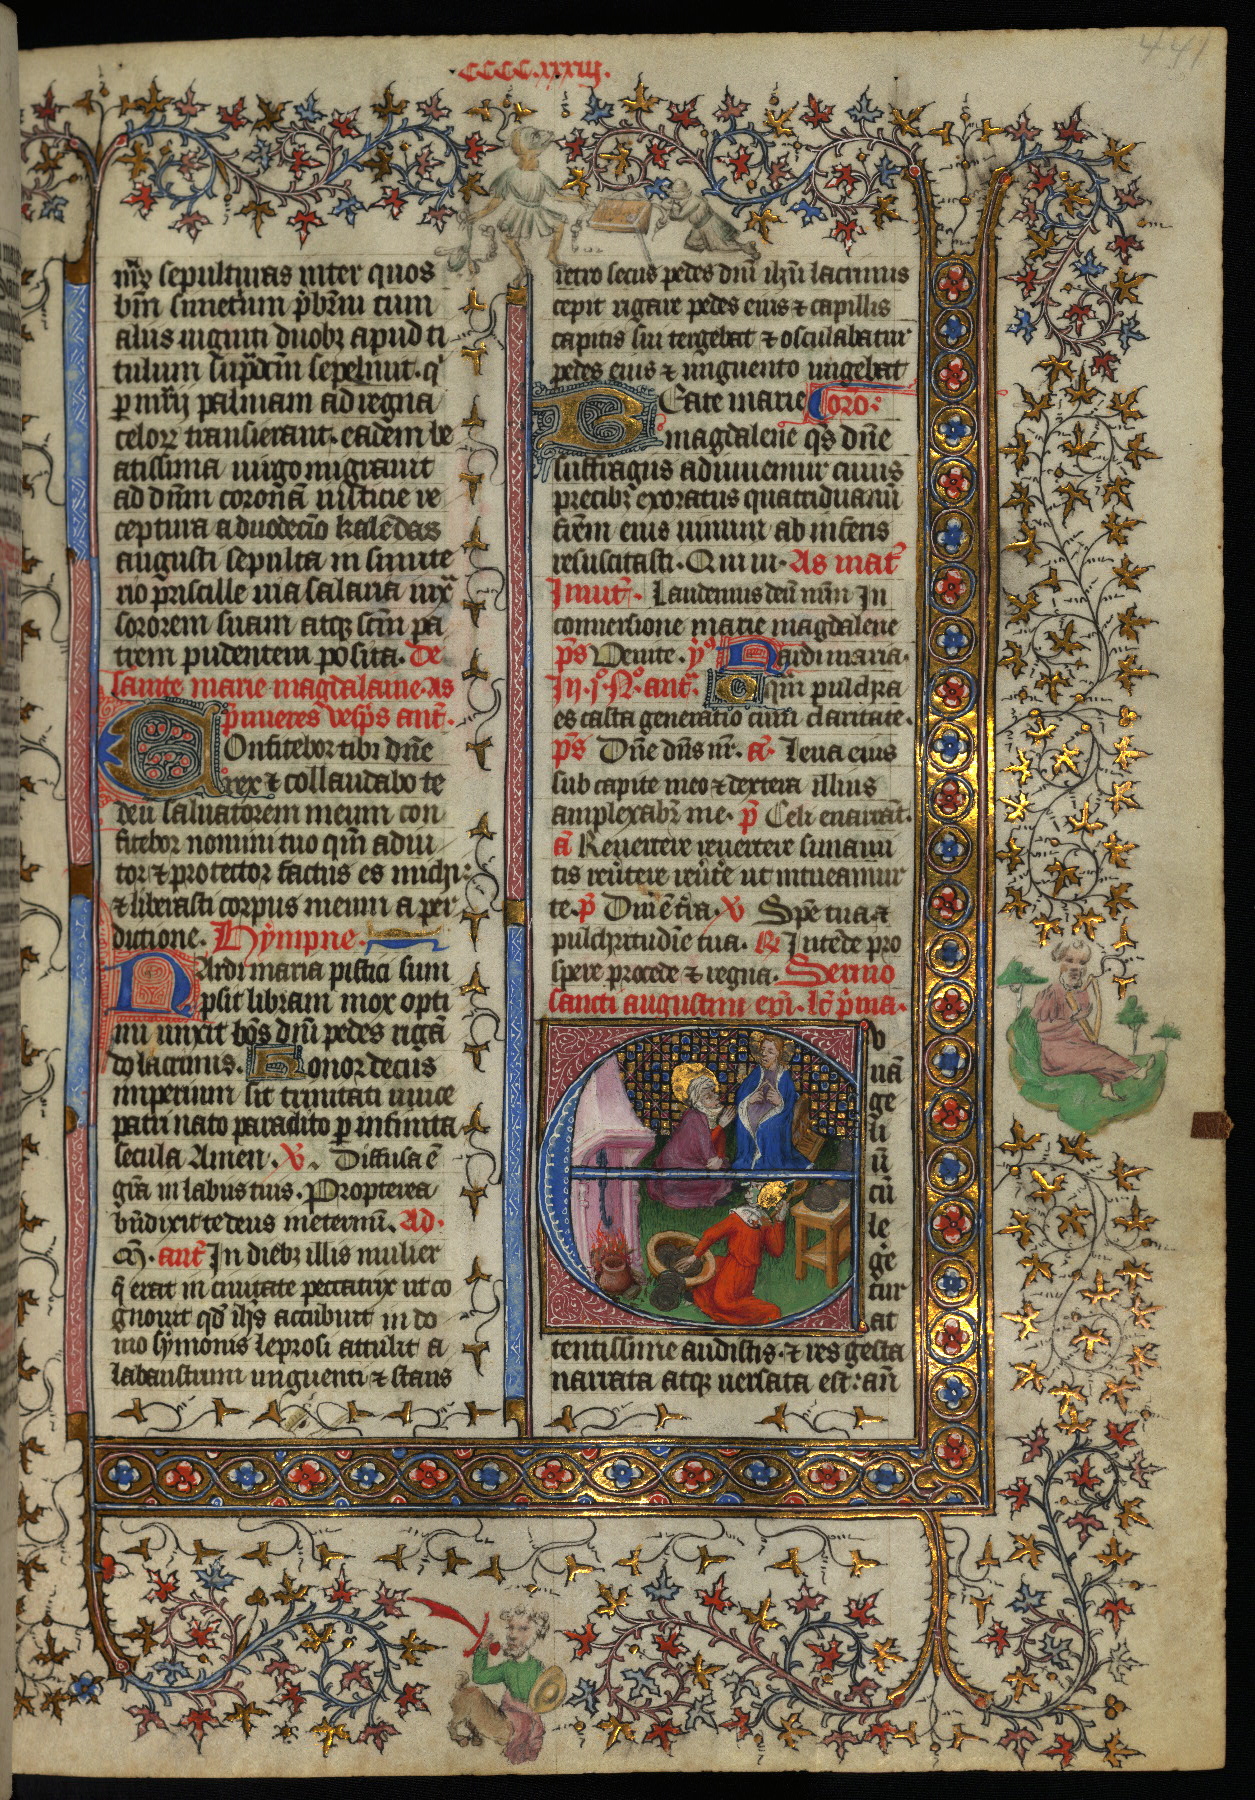 CCCC.xxxiij.
441
mr̄ẏ sepulturas inter quos
bm̄ simetrium p̄br̄m cum
aliis uiginti duobꝫ apud ti
tulum sup̄dcm̄ sepeliuit. q̄
p mr̄ii palmam ad regna
celoꝝ transierant. eadem be
atissima uirgo migrauit
ad dn̄m coronā iusticie re
ceptura a duodecīo kalēdas
augusti sepulta in simite
rio priscille uia salaria iux̄
sororem suam atqꝫ scm̄ pa
trem pudentem posita. De
sainte marie magdalaine. As
p̄mieres vesp̄s ant̄.
Confitebor tibi dn̄e
rex ⁊ collaudabo te
deū saluatorem meum con
fitebor nomini tuo qm̄ adiu
tor ⁊ protector factus es michi
⁊ liberasti corpus meum a per
ditione. Hẏmpne.
Nardi maria pistici sum
psit libram mox opti
mi unxit bōs dn̄i pedes rigā
do lacrimis. Honor decus
imperium sit trinitati unice
patri nato paraclito p infinita
secula Amen. V̄. Diffusa ē
gr̄a in labiis tuis. Propterea
bn̄dixit te deus in eternū. Ad
M̄. ant̄ In diebꝫ illis mulier
q̄ erat in ciuitate peccatrix ut co
gnouit qd̓ ih̄s accubuit in do
mo sẏmonis leprosi attulit a
labaustrum unguenti ⁊ stans
retro secus pedes dn̄i ih̄u lacrimis
cepit rigare pedes eius ⁊ capillis
capitis sui tergebat ⁊ osculabatur
pedes eius ⁊ unguento ungebat
Beate marie Oro᷒.
magdalene qs̄ dn̄e
suffragiis adiuuemur cuius
precibꝫ exoratus quatriduanū
fr̄em eius uiuum ab inferis
resuscitasti. Qui ui. As mat̄
Inuit̄. Laudemus deū nr̄m In
conuersione marie magdalene
p̄s Venite. ẏº Nardi maria.
In. j.º N.º ant̄. O qm̄ pulchra
es casta generatio cum claritate.
p̄s Dn̄e dn̄s nr̄. ā. Leua eius
sub capite meo ⁊ dextera illius
amplexabr̄ me. p̄ Celi enarrāt.
ā Reuertere reuertere sunami
tis reu̓tere reu̓te ut intueamur
te. p̄ Dn̄i ē t̄ra. V̄ Spē tua ⁊
pulchritudīe tua. R̄ Intēde pro
spere procede ⁊ regna. Sermo
sancti augustini ep̄i. lc̄ p̄ma.
Eu
uā
ge
li
ū
cū
le
ge
tur
at
tentissime audistis. ⁊ res gesta
narrata atqꝫ uersata est: an̄